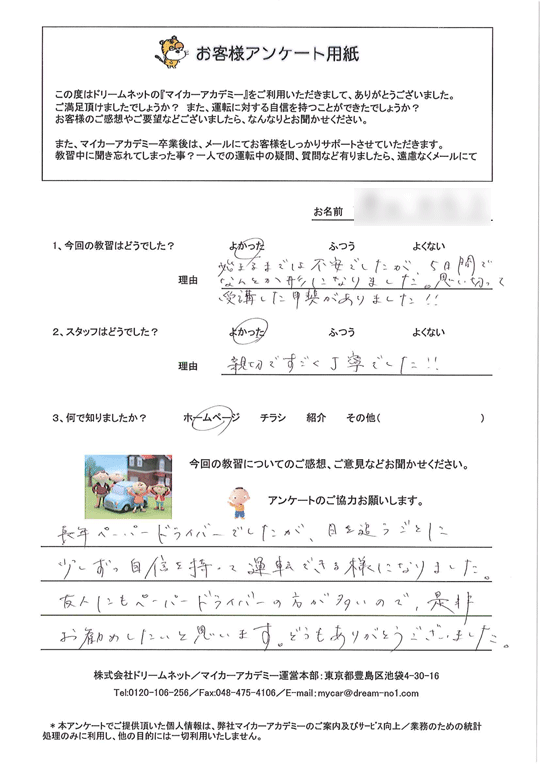 お客様アンケート用紙
この度はドリームネットの『マイカーアカデミー』をご利用いただきまして、ありがとうございました。
ご満足頂けましたでしょうか？ また、運転に対する自信を持つことができたでしょうか？
お客様のご感想やご要望などございましたら、なんなりとお聞かせください。
また、マイカーアカデミー卒業後は、メールにてお客様をしっかりサポートさせていただきます。
教習中に聞き忘れてしまった事？一人での運転中の疑問、質問など有りましたら、遠慮なくメールにて
お名前
1、今回の教習はどうでした？ よかった ふつう よくない
始まるまでは不安でしたが、5日間で
理由 なんとか形になりました。思い切って
受講した甲斐がありました!!
2、スタッフはどうでした？ よかった ふつう よくない
理由 親切ですごく丁寧でした!!
3、何で知りましたか？ ホームページ チラシ 紹介 その他( )
今回の教習についてのご感想、ご意見などお聞かせください。
アンケートのご協力お願いします。
長年ペーパードライバーでしたが、日を追うごとに
少しずつ自信を持って運転できる様になりました。
友人にもペーパードライバーの方が多いので、是非
お勧めしたいと思います。どうもありがとうございました。
株式会社ドリームネット／マイカーアカデミー運営本部：東京都豊島区池袋4-30-16
Tel:0120-106-256／Fax:048-475-4106／E-mail:mycar@dream-no1.com
＊本アンケートでご提供頂いた個人情報は、弊社マイカーアカデミーのご案内及びサービス向上／業務のための統計
処理のみに利用し、他の目的には一切利用いたしません。